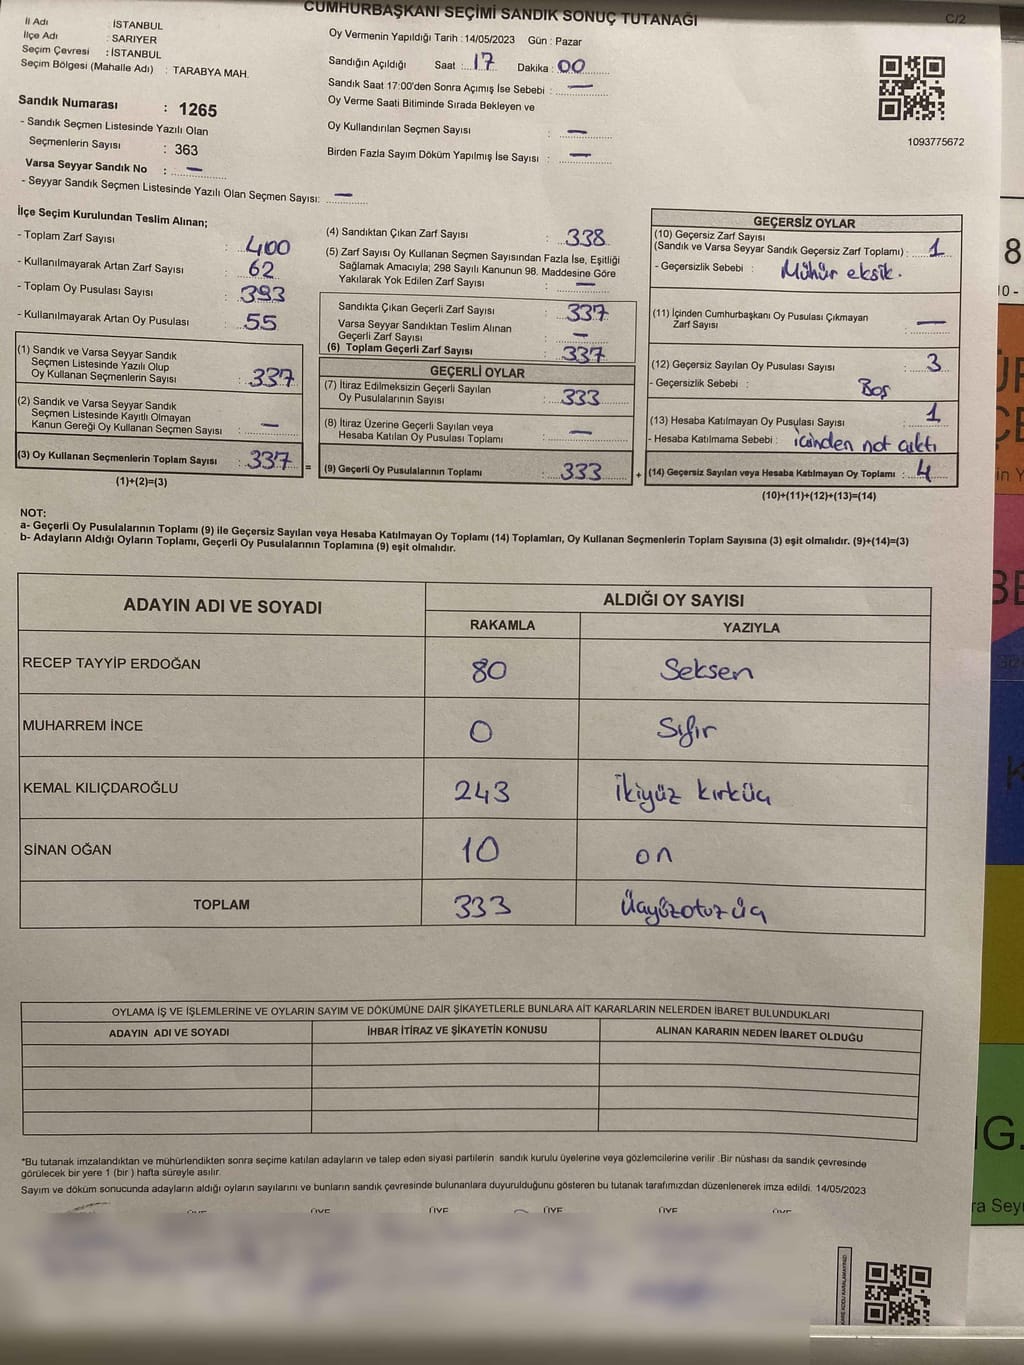 CUMHURBAŞKANI SEÇİMİ SANDIK SONUÇ TUTANAĞI
C/2
İl Adı : İSTANBUL
İlçe Adı : SARIYER
Seçim Çevresi : İSTANBUL
Seçim Bölgesi (Mahalle Adı) : TARABYA MAH.
Sandık Numarası : 1265
- Sandık Seçmen Listesinde Yazılı Olan
Seçmenlerin Sayısı : 363
Varsa Seyyar Sandık No : —
- Seyyar Sandık Seçmen Listesinde Yazılı Olan Seçmen Sayısı: —
Oy Vermenin Yapıldığı Tarih : 14/05/2023 Gün : Pazar
Sandığın Açıldığı Saat : 17 Dakika : 00
Sandık Saat 17:00'den Sonra Açımış İse Sebebi : —
Oy Verme Saati Bitiminde Sırada Bekleyen ve
Oy Kullandırılan Seçmen Sayısı : —
Birden Fazla Sayım Döküm Yapılmış İse Sayısı : —
1093775672
İlçe Seçim Kurulundan Teslim Alınan;
- Toplam Zarf Sayısı : 400
- Kullanılmayarak Artan Zarf Sayısı : 62
- Toplam Oy Pusulası Sayısı : 393
- Kullanılmayarak Artan Oy Pusulası : 55
(1) Sandık ve Varsa Seyyar Sandık
Seçmen Listesinde Yazılı Olup
Oy Kullanan Seçmenlerin Sayısı : 337
(2) Sandık ve Varsa Seyyar Sandık
Seçmen Listesinde Kayıtlı Olmayan
Kanun Gereği Oy Kullanan Seçmen Sayısı : —
(3) Oy Kullanan Seçmenlerin Toplam Sayısı : 337 =
(1)+(2)=(3)
(4) Sandıktan Çıkan Zarf Sayısı : 338
(5) Zarf Sayısı Oy Kullanan Seçmen Sayısından Fazla İse, Eşitliği
Sağlamak Amacıyla; 298 Sayılı Kanunun 98. Maddesine Göre
Yakılarak Yok Edilen Zarf Sayısı : —
Sandıkta Çıkan Geçerli Zarf Sayısı : 337
Varsa Seyyar Sandıktan Teslim Alınan
Geçerli Zarf Sayısı : —
(6) Toplam Geçerli Zarf Sayısı : 337
GEÇERLİ OYLAR
(7) İtiraz Edilmeksizin Geçerli Sayılan
Oy Pusulalarının Sayısı : 333
(8) İtiraz Üzerine Geçerli Sayılan veya
Hesaba Katılan Oy Pusulası Toplamı : —
(9) Geçerli Oy Pusulalarının Toplamı : 333 +
GEÇERSİZ OYLAR
(10) Geçersiz Zarf Sayısı
(Sandık ve Varsa Seyyar Sandık Geçersiz Zarf Toplamı) : 1
- Geçersizlik Sebebi : Mühür eksik.
(11) İçinden Cumhurbaşkanı Oy Pusulası Çıkmayan
Zarf Sayısı : —
(12) Geçersiz Sayılan Oy Pusulası Sayısı : 3
- Geçersizlik Sebebi : Boş
(13) Hesaba Katılmayan Oy Pusulası Sayısı : 1
- Hesaba Katılmama Sebebi : içinden not çıktı
(14) Geçersiz Sayılan veya Hesaba Katılmayan Oy Toplamı : 4
(10)+(11)+(12)+(13)=(14)
NOT:
a- Geçerli Oy Pusulalarının Toplamı (9) ile Geçersiz Sayılan veya Hesaba Katılmayan Oy Toplamı (14) Toplamları, Oy Kullanan Seçmenlerin Toplam Sayısına (3) eşit olmalıdır. (9)+(14)=(3)
b- Adayların Aldığı Oyların Toplamı, Geçerli Oy Pusulalarının Toplamına (9) eşit olmalıdır.
ADAYIN ADI VE SOYADI
ALDIĞI OY SAYISI
RAKAMLA YAZIYLA
RECEP TAYYİP ERDOĞAN 80 Seksen
MUHARREM İNCE 0 Sıfır
KEMAL KILIÇDAROĞLU 243 İkiyüz kırküç
SİNAN OĞAN 10 on
TOPLAM 333 Üçyüzotuzüç
OYLAMA İŞ VE İŞLEMLERİNE VE OYLARIN SAYIM VE DÖKÜMÜNE DAİR ŞİKAYETLERLE BUNLARA AİT KARARLARIN NELERDEN İBARET BULUNDUKLARI
ADAYIN ADI VE SOYADI
İHBAR İTİRAZ VE ŞİKAYETİN KONUSU
ALINAN KARARIN NEDEN İBARET OLDUĞU
*Bu tutanak imzalandıktan ve mühürlendikten sonra seçime katılan adayların ve talep eden siyasi partilerin sandık kurulu üyelerine veya gözlemcilerine verilir .Bir nüshası da sandık çevresinde
görülecek bir yere 1 (bir ) hafta süreyle asılır.
Sayım ve döküm sonucunda adayların aldığı oyların sayılarını ve bunların sandık çevresinde bulunanlara duyurulduğunu gösteren bu tutanak tarafımızdan düzenlenerek imza edildi. 14/05/2023
ÜYE ÜYE ÜYE ÜYE ÜYE ÜYE
8